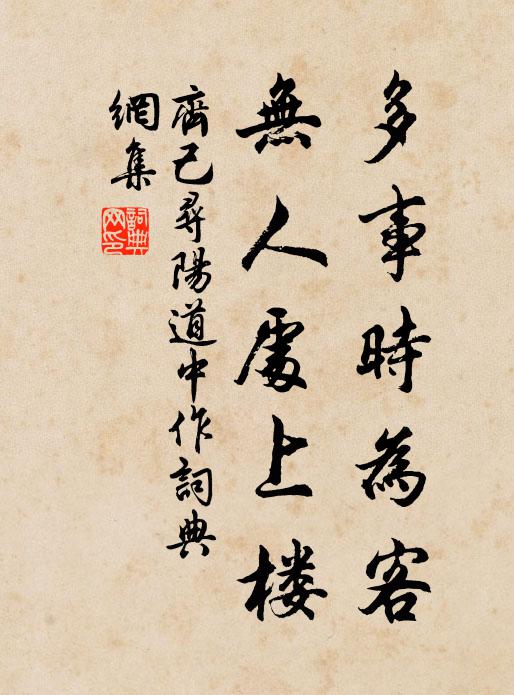 多事時為客
無人處上楼
齊己尋陽道中作詞典
網集
詞典网印